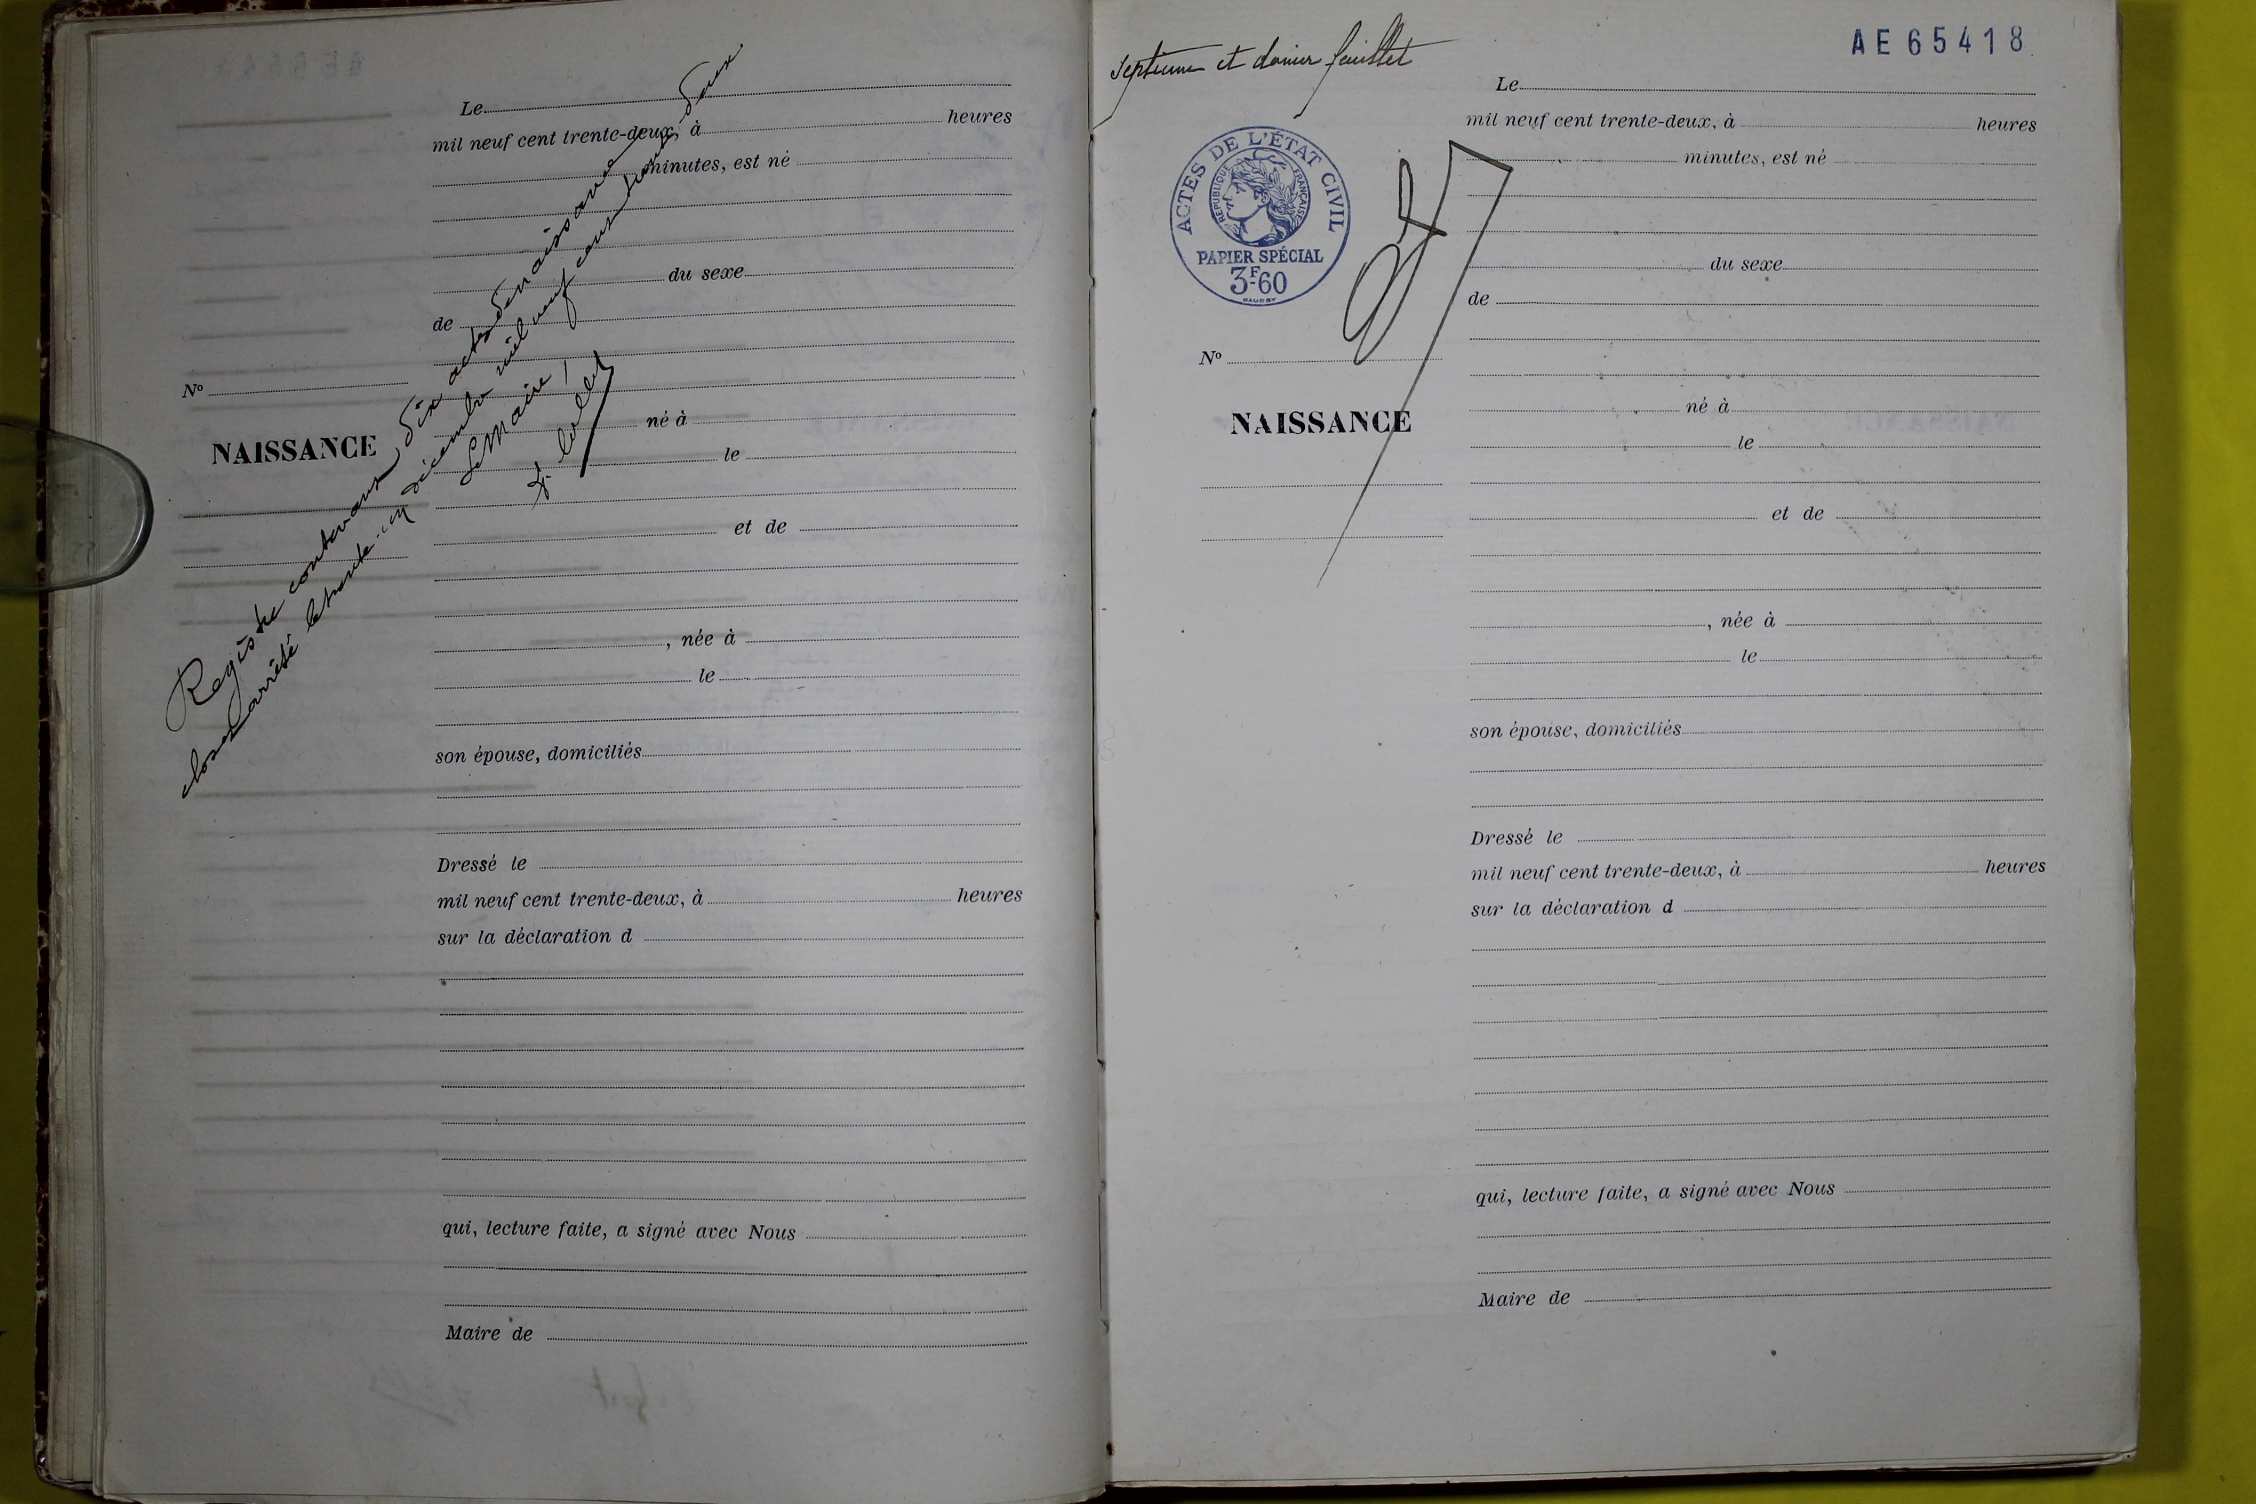 Le
mil neuf cent trente-deux, à heures
minutes, est né
du sexe
de
né à
le
et de
, née à
le
son épouse, domiciliés
Dressé le
mil neuf cent trente-deux, à heures
sur la déclaration d
qui, lecture faite, a signé avec Nous
Maire de
Nº
NAISSANCE
Registre contenant dix actes de naissance
clos et arrêté le trente-un décembre mil neuf cent trente deux
Le Maire
septième et dernier feuillet
AE 65418
ACTES DE L'ÉTAT CIVIL
RÉPUBLIQUE FRANÇAISE
PAPIER SPÉCIAL
3F.60
Nº
NAISSANCE
Le
mil neuf cent trente-deux, à heures
minutes, est né
du sexe
de
né à
le
et de
, née à
le
son épouse, domiciliés
Dressé le
mil neuf cent trente-deux, à heures
sur la déclaration d
qui, lecture faite, a signé avec Nous
Maire de